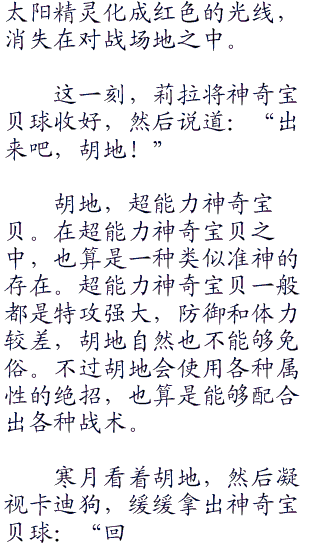 太阳精灵化成红色的光线，
消失在对战场地之中。
这一刻，莉拉将神奇宝
贝球收好，然后说道：“出
来吧，胡地！”
胡地，超能力神奇宝
贝。在超能力神奇宝贝之
中，也算是一种类似准神的
存在。超能力神奇宝贝一般
都是特攻强大，防御和体力
较差，胡地自然也不能够免
俗。不过胡地会使用各种属
性的绝招，也算是能够配合
出各种战术。
寒月看着胡地，然后凝
视卡迪狗，缓缓拿出神奇宝
贝球：“回